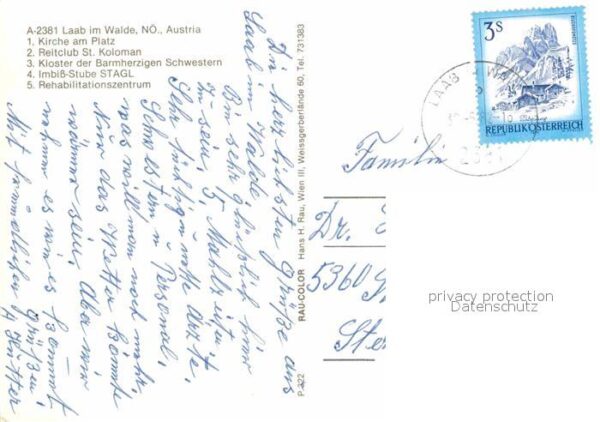 A-2381 Laab im Walde, NÖ., Austria
1. Kirche am Platz
2. Reitclub St. Koloman
3. Kloster der Barmherzigen Schwestern
4. Imbiß-Stube STAGL
5. Rehabilitationszentrum
Die herzlichsten Grüße aus
Laab im Walde
Bin sehr glücklich hier
zu sein, 5 Mahlzeiten
Sehr tüchtige nette Ärzte,
Schwestern u Personal,
was will man noch mehr,
Nur das Wetter könnte
schöner sein, aber wir
nehmen es wie es kommt
Mit
Grüßen
P 322 RAU-COLOR Hans H. Rau, Wien III, Weissgerberlände 60, Tel. 731383
3S
REPUBLIK ÖSTERREICH
LAAB
Familie
Dr.
5360
privacy protection
Datenschutz